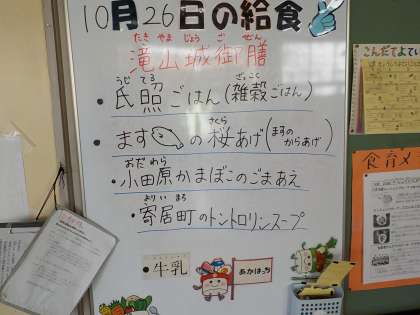 10月26日の給食
たき やま じょう ご ぜん
滝山城御膳
うじ てる ざっこく
・氏照ごはん(雑穀ごはん)
さくら
・ますの桜あげ(ますのからあげ)
おだ わら
・小田原かまぼこのごまあえ
よりい まち
・寄居町のトントロリンスープ
・牛乳
あかはっち
こんだてよてい
食育メ